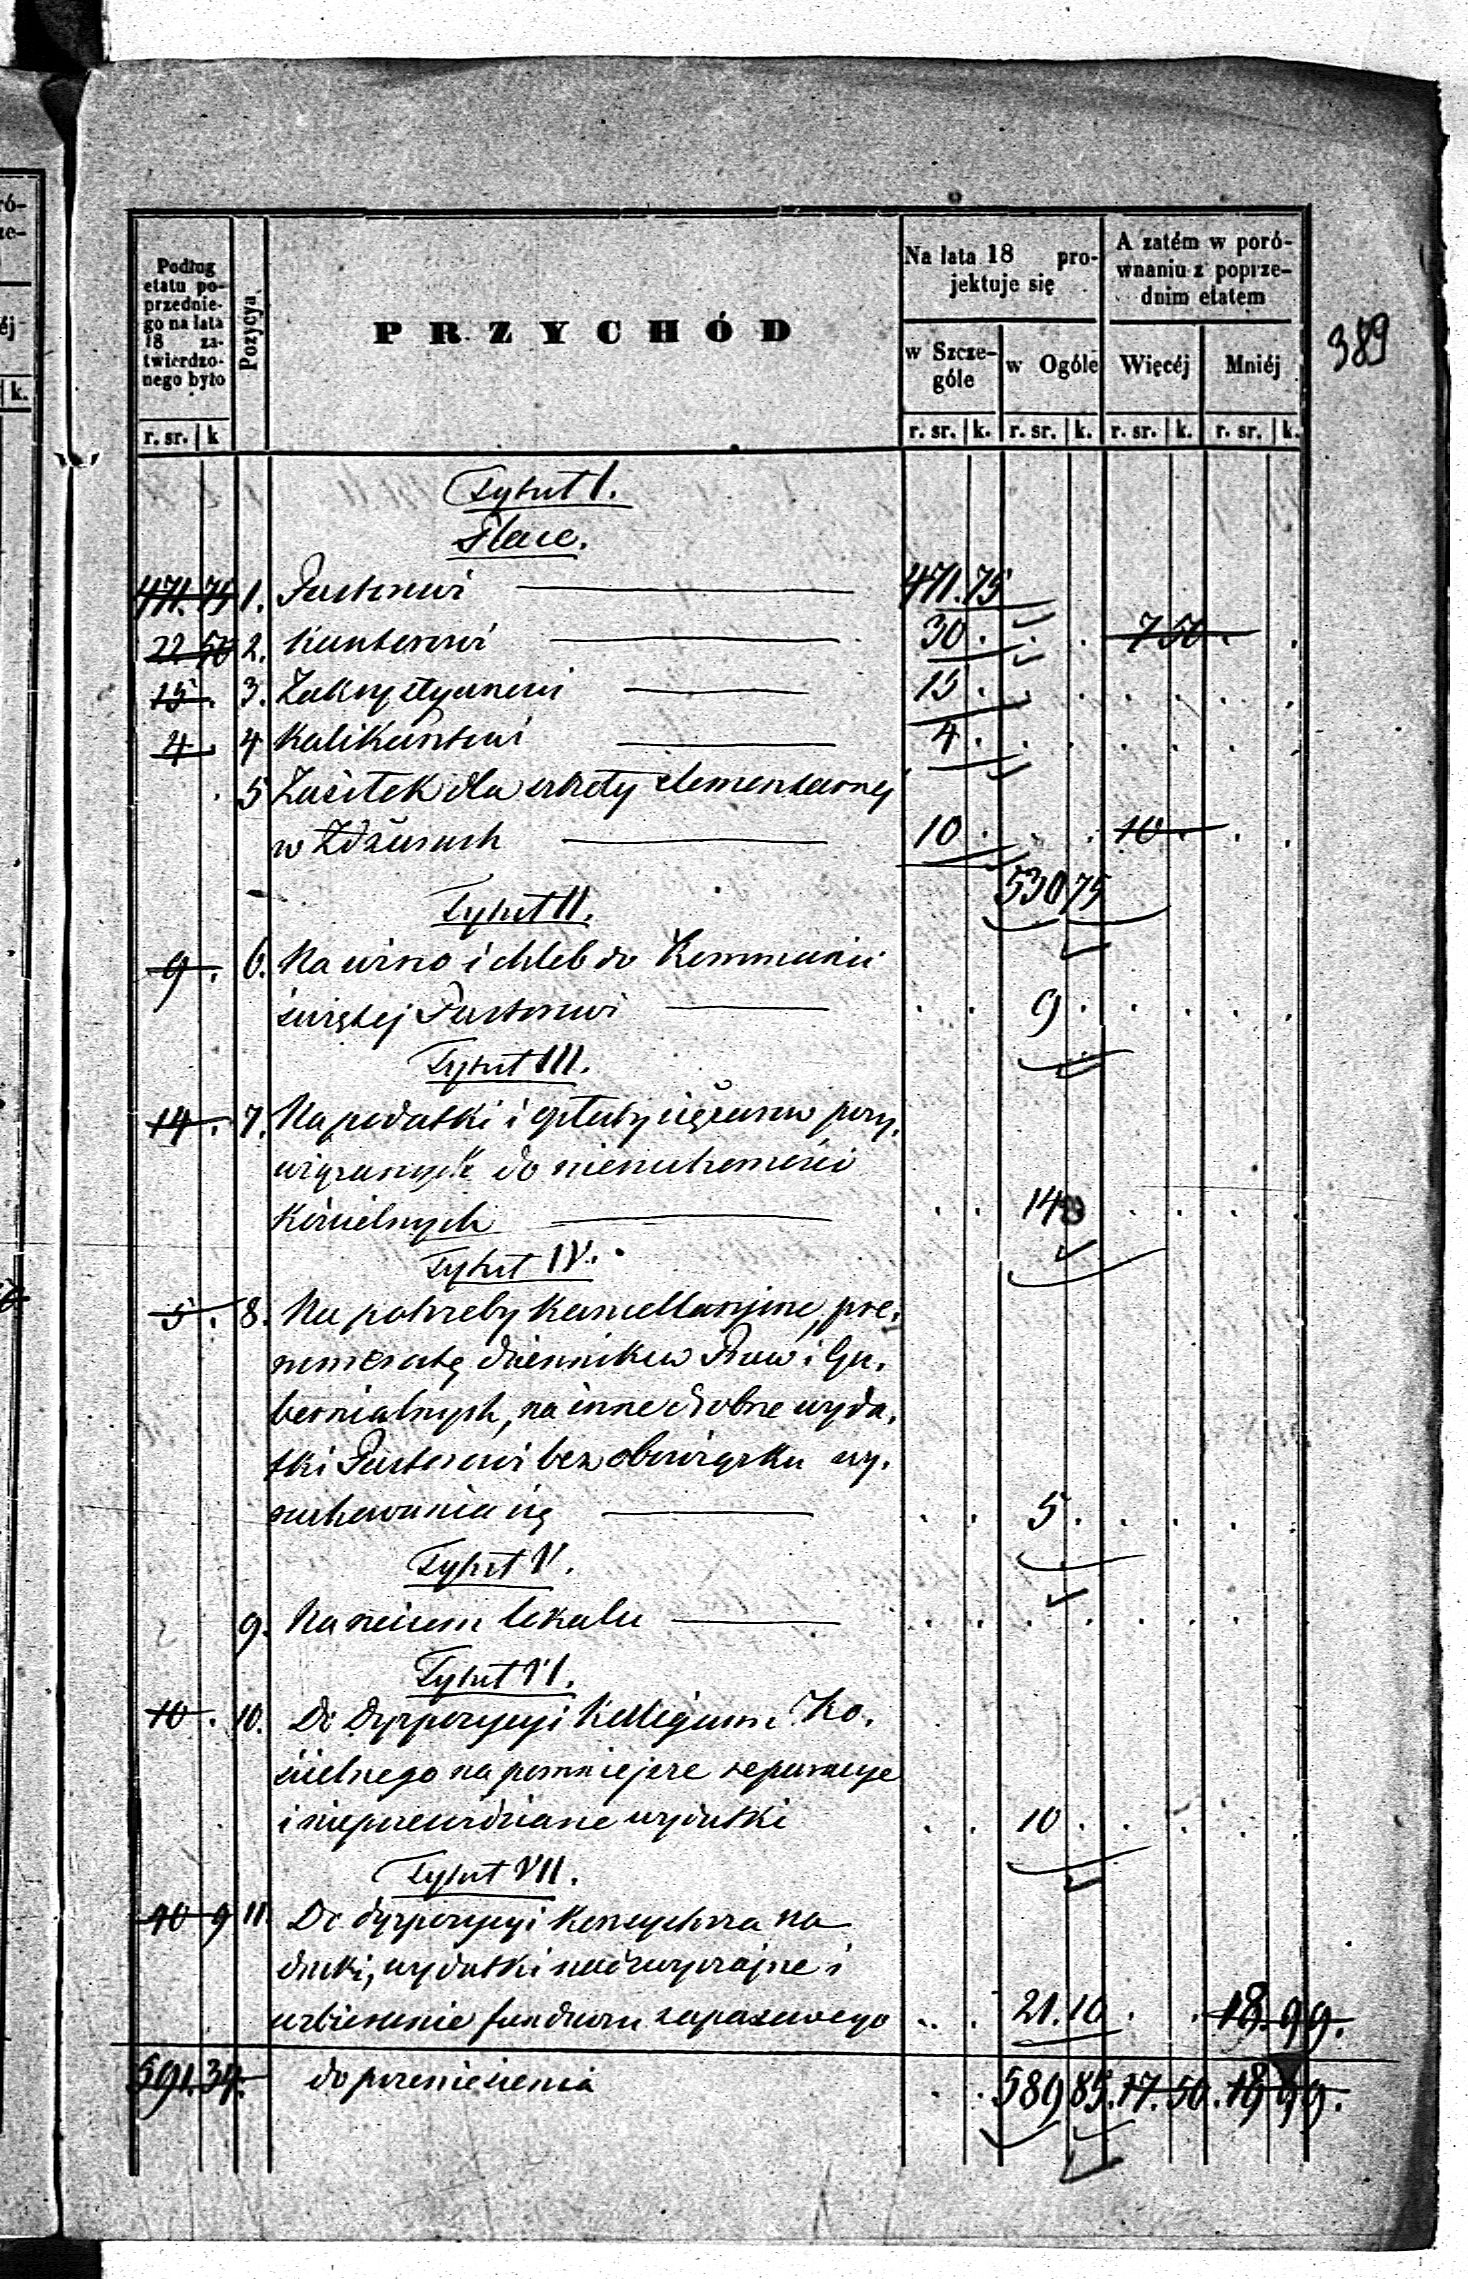 389
Podług etatu poprzedniego na lata 18 zatwierdzonego było
Pozycya
PRZYCHÓD
Na lata 18 projektuje się
A zatém w porównaniu z poprzednim etatem
w Szczególe
w Ogóle
Więcéj
Mniéj
r. sr. k
r. sr. k. r. sr. k. r. sr. k. r. sr. k.
Tytuł I.
Płace.
471. 75 1. Pastorowi 471. 75
22 50 2. Kantorowi 30 . . . 7 50 . .
15 . 3. Zakrystyanowi 15 . . . . . . .
4 . 4 Kalikantowi 4 . . . . . . .
. 5 Zasiłek dla szkoły elementarnej
w Zdżarach 10 . . . 10 . . .
530 75
Tytuł II.
9 . 6. Na wino i chleb do Kommunii
świętej Pastorowi . . 9 . . . . .
Tytuł III.
14 . 7. Na podatki i opłaty ciężarów przy-
wiązanych do nieruchomości
Kościelnych . . 14 . . . .
Tytuł IV.
5 . 8. Na potrzeby Kancellaryjne, pre-
numeratę dzienników Praw i Gu-
bernialnych, na inne drobne wyda-
tki Pastorowi bez obowiązku wy-
rachowania się . . 5 . . . . .
Tytuł V.
9. Na najem lokalu . . . . . . .
Tytuł VI.
10 . 10. Do Dyspozycyi Kollegium Ko-
ścielnego na pomniejsze reparacye
i nieprzewidziane wydatki . . 10 . . . . .
Tytuł VII.
40 9 11. Do dyspozycyi Konsystorza na
druki, wydatki nadzwyczajne i
urbieranie funduszu zapasowego . . 21. 10 . . 18. 99.
591. 34. do przeniesienia . . 589 85. 17. 50. 18 99.